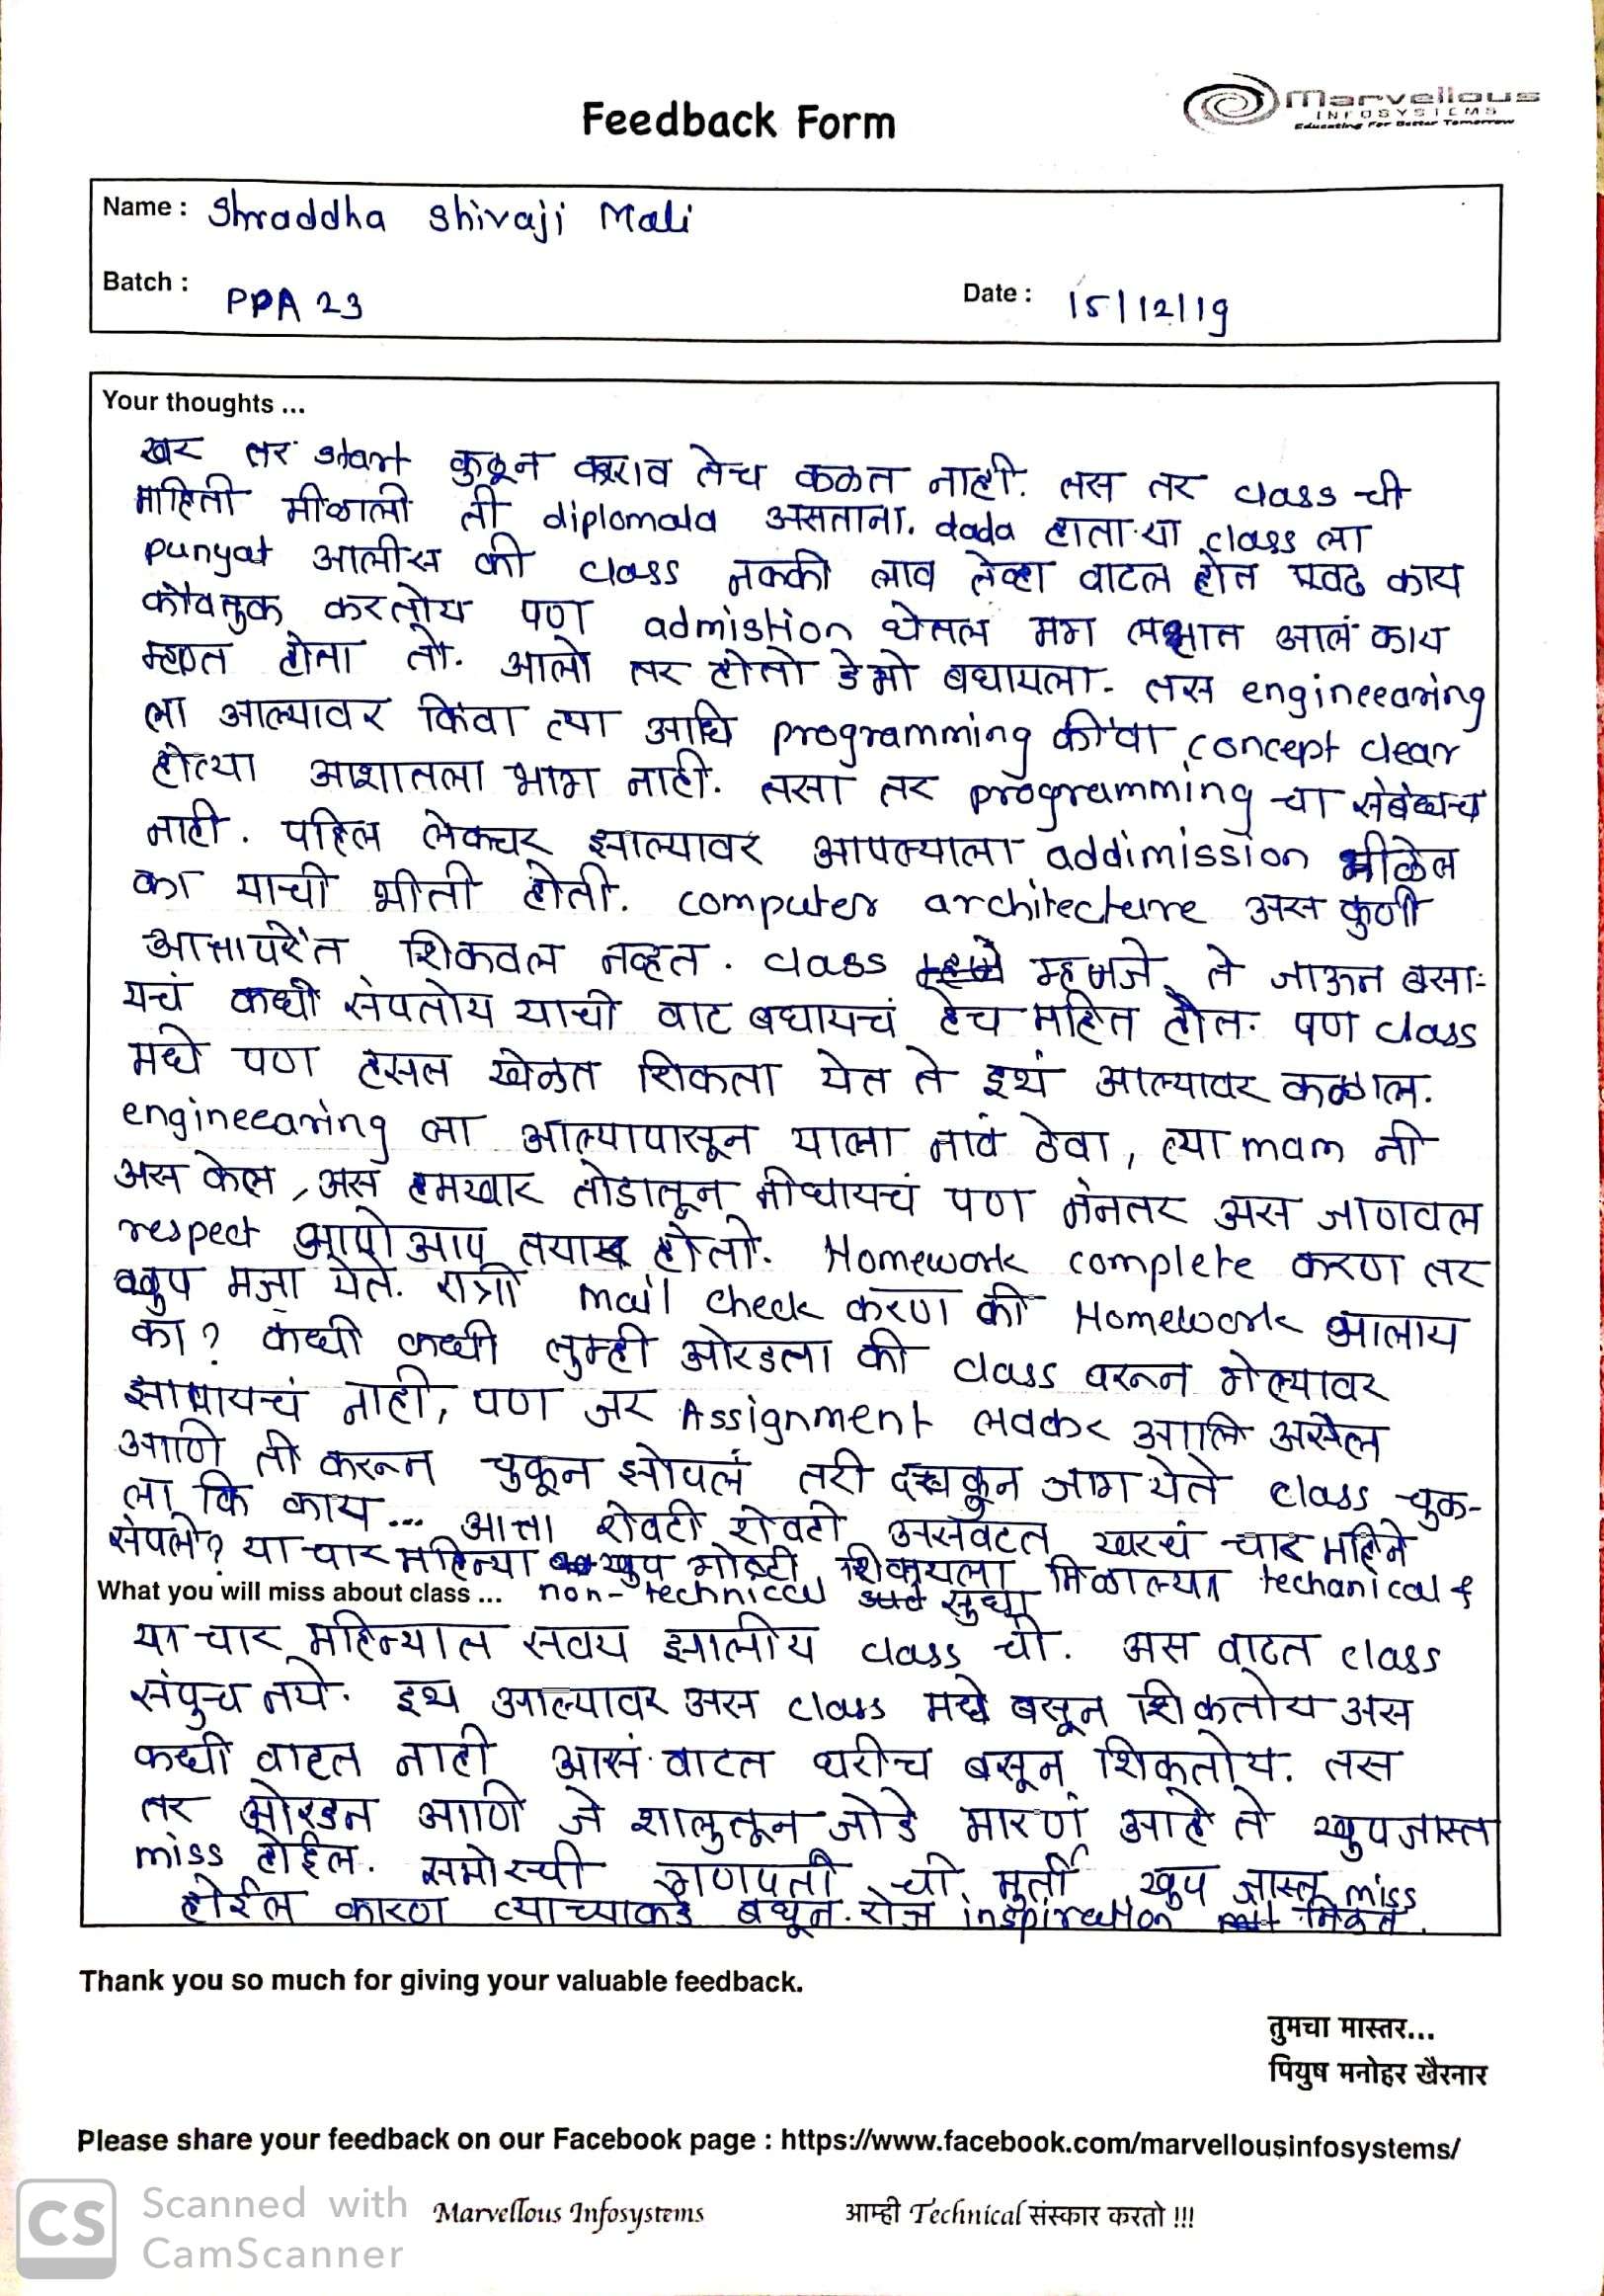 Feedback Form
Marvellous
INFOSYSTEMS
Educating For Better Tomorrow
Name : Shraddha Shivaji Mali
Batch : PPA 23
Date : 15/12/19
Your thoughts ...
खर तर start कुठून कराव तेच कळत नाही. तस तर class ची
माहिती मीळाली ती diplomala असताना. dada होता या class ला
punyat आलीस की class नक्की लाव तेव्हा वाटल होत एवढ काय
कौवतुक करतोय पण admistion घेतल मग लक्षात आलं काय
म्हणत होता तो. आलो तर होतो डेमो बघायला. तस engineearing
ला आल्यावर किंवा त्या आधि programming कींवा concept clear
होत्या आशातला भाग नाही. तसा तर programming चा संबंधच
नाही. पहिल लेक्चर झाल्यावर आपल्याला addimission मीळेल
का याची भीती होती. computer architecture अस कुणी
आत्तापरेंत शिकवल नव्हत. class म्हणजे ते जाऊन बसा-
यचं कधी संपतोय याची वाट बघायचं हेच महित होत. पण class
मधे पण हसत खेळत शिकता येत ते इथं आल्यावर कळाल.
engineearing ला आल्यापासून याला नावं ठेवा, त्या mam नी
अस केल, असं हमखार तोंडातून नीघायचं पण नंनतर अस जाणवल
respect आपोआप तयार होतो. Homework complete करण तर
खुप मजा येते. रात्री mail check करण की Homework आलाय
का? कधी कधी तुम्ही ओरडला की class वरून गेल्यावर
झोपायचं नाही, पण जर Assignment लवकर आलि असेल
आणि ती करून चुकून झोपलं तरी दचकून जाग येते class चुक-
ला कि काय... आत्ता शेवटी शेवटी असंवटत खरचं चार महिने
संपले? या चार महिन्या खुप गोष्टी शिकायला मिळाल्या techanical &
What you will miss about class ... non-technical सुधा
या चार महिन्यात सवय झालीय class ची. अस वाटत class
संपुच नये. इथ आल्यावर अस class मधे बसून शिकतोय अस
कधी वाटत नाही आसं वाटत घरीच बसून शिकतोय. तस
तर ओरडन आणि जे शालुतून जोडे मारणं आहे ते खुपजास्त
miss होईल. समोरची गणपती ची मुर्ती खुप जास्त miss
होईल कारण त्याच्याकडे बघून रोज inspiration मिळत.
Thank you so much for giving your valuable feedback.
तुमचा मास्तर...
पियुष मनोहर खैरनार
Please share your feedback on our Facebook page : https://www.facebook.com/marvellousinfosystems/
CS Scanned with CamScanner
Marvellous Infosystems
आम्ही Technical संस्कार करतो !!!